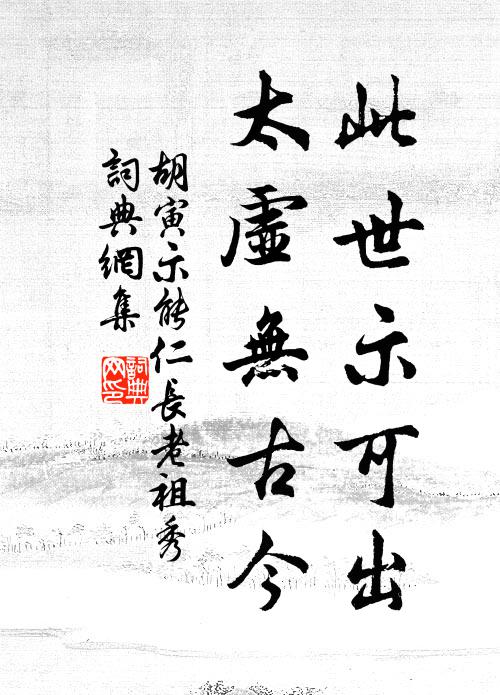 此世示可出
太虛無古今
胡寅示能仁長老祖秀
詞典網集
詞典網印